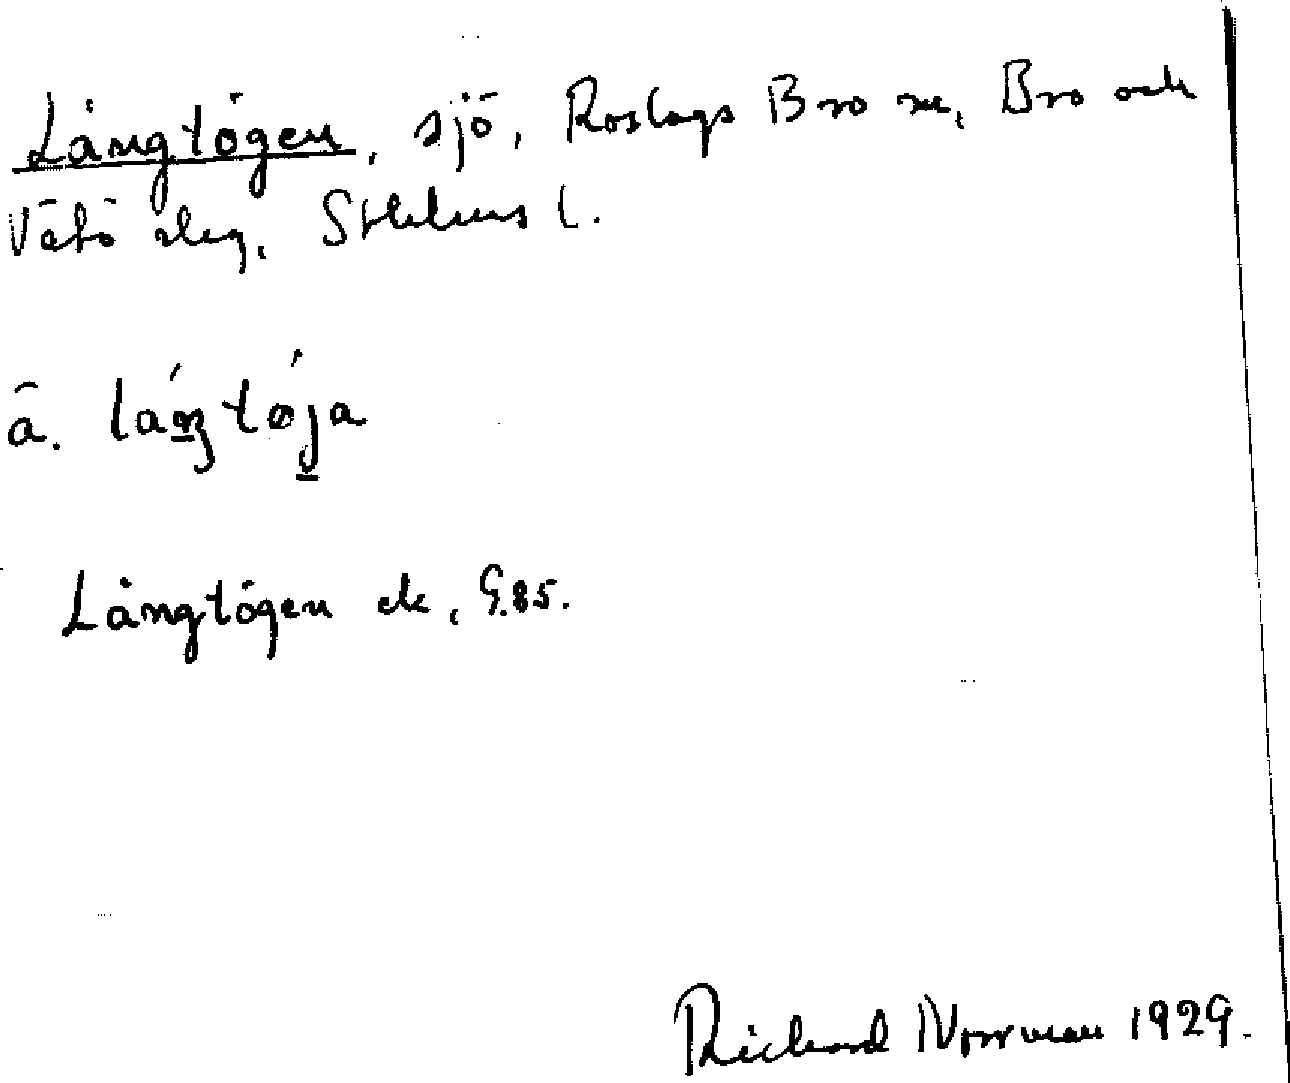 Långtögen, sjö, Roslags Bro sn, Bro och
Vätö skg, Sthlms l.
ä. láŋtø̀ja
Långtögen ek, G.85.
Richard Norrman 1929.